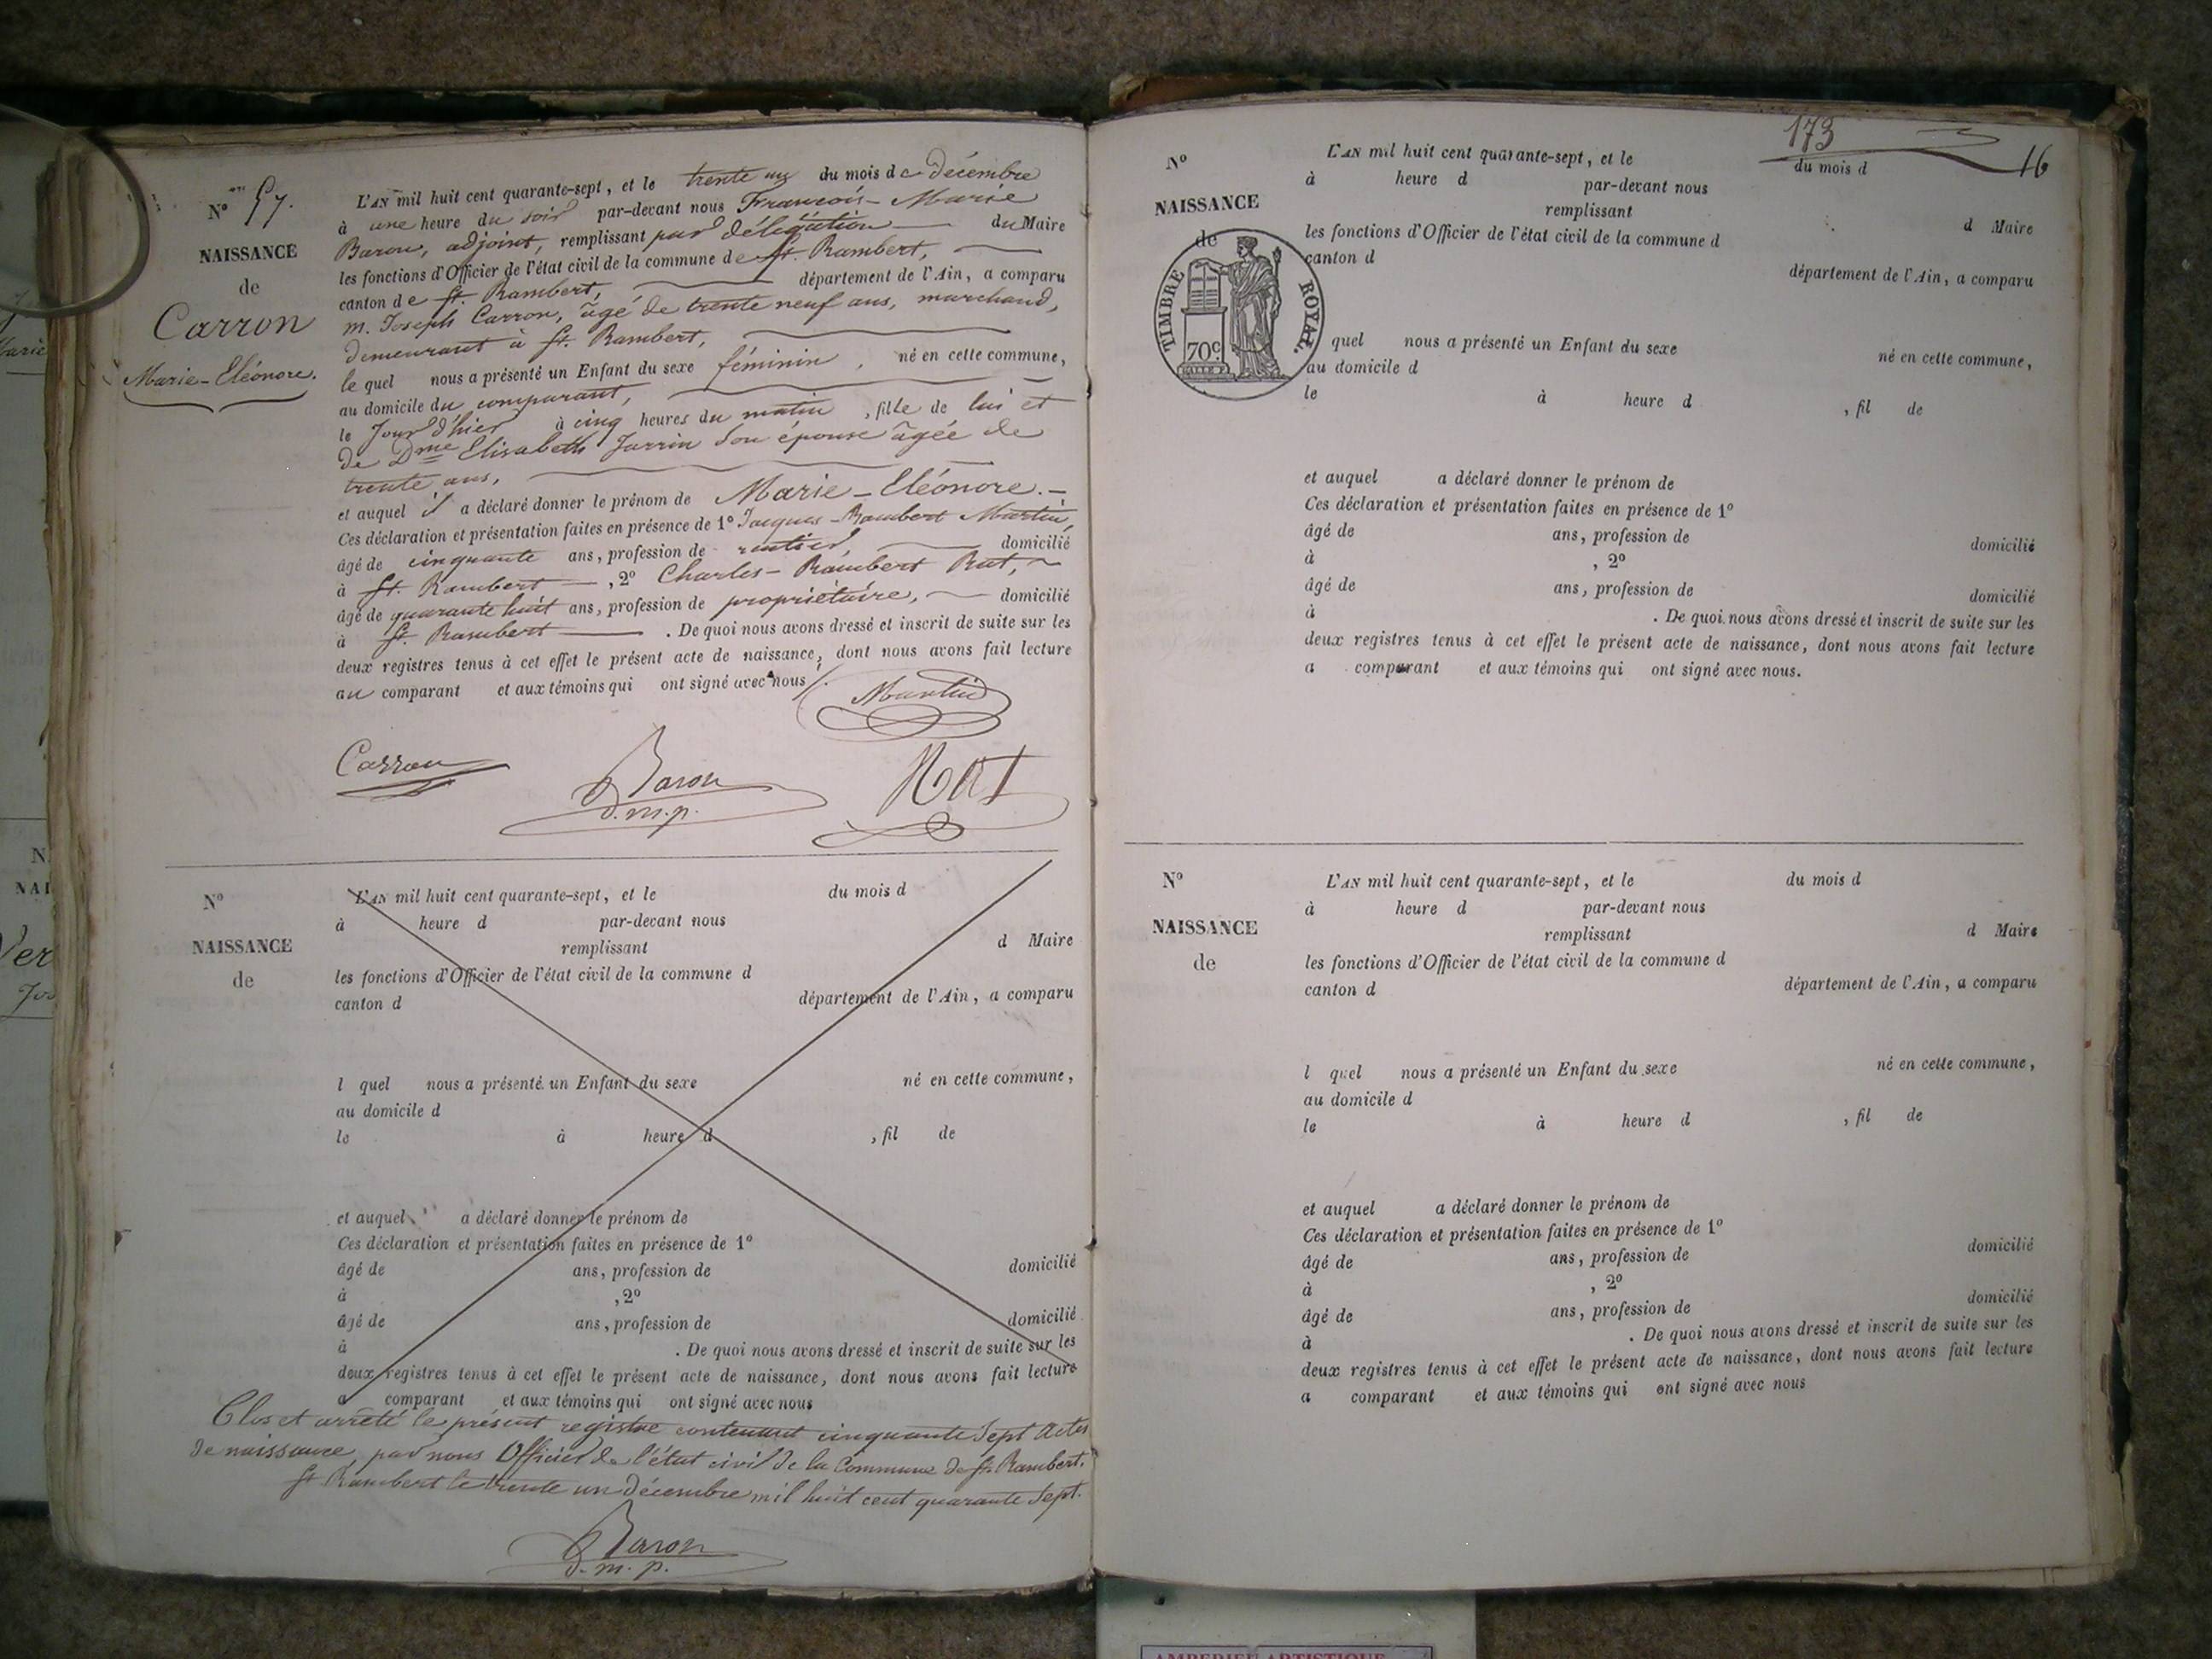 Nº 57.
NAISSANCE
de
Carron
Marie-Eléonore.
L'AN mil huit cent quarante-sept, et le trente un du mois de Décembre
à une heure du soir par-devant nous François-Marie
Baron, adjoint, remplissant par délégation du Maire
les fonctions d'Officier de l'état civil de la commune de St. Rambert,
canton de St. Rambert, département de l'Ain, a comparu
m. Joseph Carron, âgé de trente neuf ans, marchand,
demeurant à St. Rambert,
le quel nous a présenté un Enfant du sexe féminin, né en cette commune,
au domicile du comparant,
le Jour d'hier à cinq heures du matin, fille de lui et
de Dme Elisabeth Jarrin Son épouse âgée de
trente ans,
et auquel il a déclaré donner le prénom de Marie-Eléonore.-
Ces déclaration et présentation faites en présence de 1º Jacques-Rambert Martin,
âgé de cinquante ans, profession de rentier, domicilié
à St. Rambert, 2º Charles-Rambert Rat,
âgé de quarante huit ans, profession de propriétaire, domicilié
à St. Rambert. De quoi nous avons dressé et inscrit de suite sur les
deux registres tenus à cet effet le présent acte de naissance, dont nous avons fait lecture
au comparant et aux témoins qui ont signé avec nous/.
Martin
Carron
Baron
d.m.p.
Rat
Nº
NAISSANCE
de
L'AN mil huit cent quarante-sept, et le du mois d
à heure d par-devant nous
remplissant d Maire
les fonctions d'Officier de l'état civil de la commune d
canton d département de l'Ain, a comparu
l quel nous a présenté un Enfant du sexe né en cette commune,
au domicile d
le à heure d , fil de
et auquel a déclaré donner le prénom de
Ces déclaration et présentation faites en présence de 1º
âgé de ans, profession de domicilié
à , 2º
âgé de ans, profession de domicilié
à . De quoi nous avons dressé et inscrit de suite sur les
deux registres tenus à cet effet le présent acte de naissance, dont nous avons fait lecture
a comparant et aux témoins qui ont signé avec nous
Clos et arrêté le présent registre contenant cinquante Sept Actes
de naissance, par nous Officier de l'état civil de la Commune de St. Rambert.
St Rambert le trente un Décembre mil huit cent quarante Sept.
Baron
d.m.p.
173
16
Nº
NAISSANCE
de
TIMBRE ROYAL.
70c
L'AN mil huit cent quarante-sept, et le du mois d
à heure d par-devant nous
remplissant d Maire
les fonctions d'Officier de l'état civil de la commune d
canton d département de l'Ain, a comparu
quel nous a présenté un Enfant du sexe né en cette commune,
au domicile d
le à heure d , fil de
et auquel a déclaré donner le prénom de
Ces déclaration et présentation faites en présence de 1º
âgé de ans, profession de domicilié
à , 2º
âgé de ans, profession de domicilié
à . De quoi nous avons dressé et inscrit de suite sur les
deux registres tenus à cet effet le présent acte de naissance, dont nous avons fait lecture
a comparant et aux témoins qui ont signé avec nous.
Nº
NAISSANCE
de
L'AN mil huit cent quarante-sept, et le du mois d
à heure d par-devant nous
remplissant d Maire
les fonctions d'Officier de l'état civil de la commune d
canton d département de l'Ain, a comparu
l quel nous a présenté un Enfant du sexe né en cette commune,
au domicile d
le à heure d , fil de
et auquel a déclaré donner le prénom de
Ces déclaration et présentation faites en présence de 1º
âgé de ans, profession de domicilié
à , 2º
âgé de ans, profession de domicilié
à . De quoi nous avons dressé et inscrit de suite sur les
deux registres tenus à cet effet le présent acte de naissance, dont nous avons fait lecture
a comparant et aux témoins qui ont signé avec nous